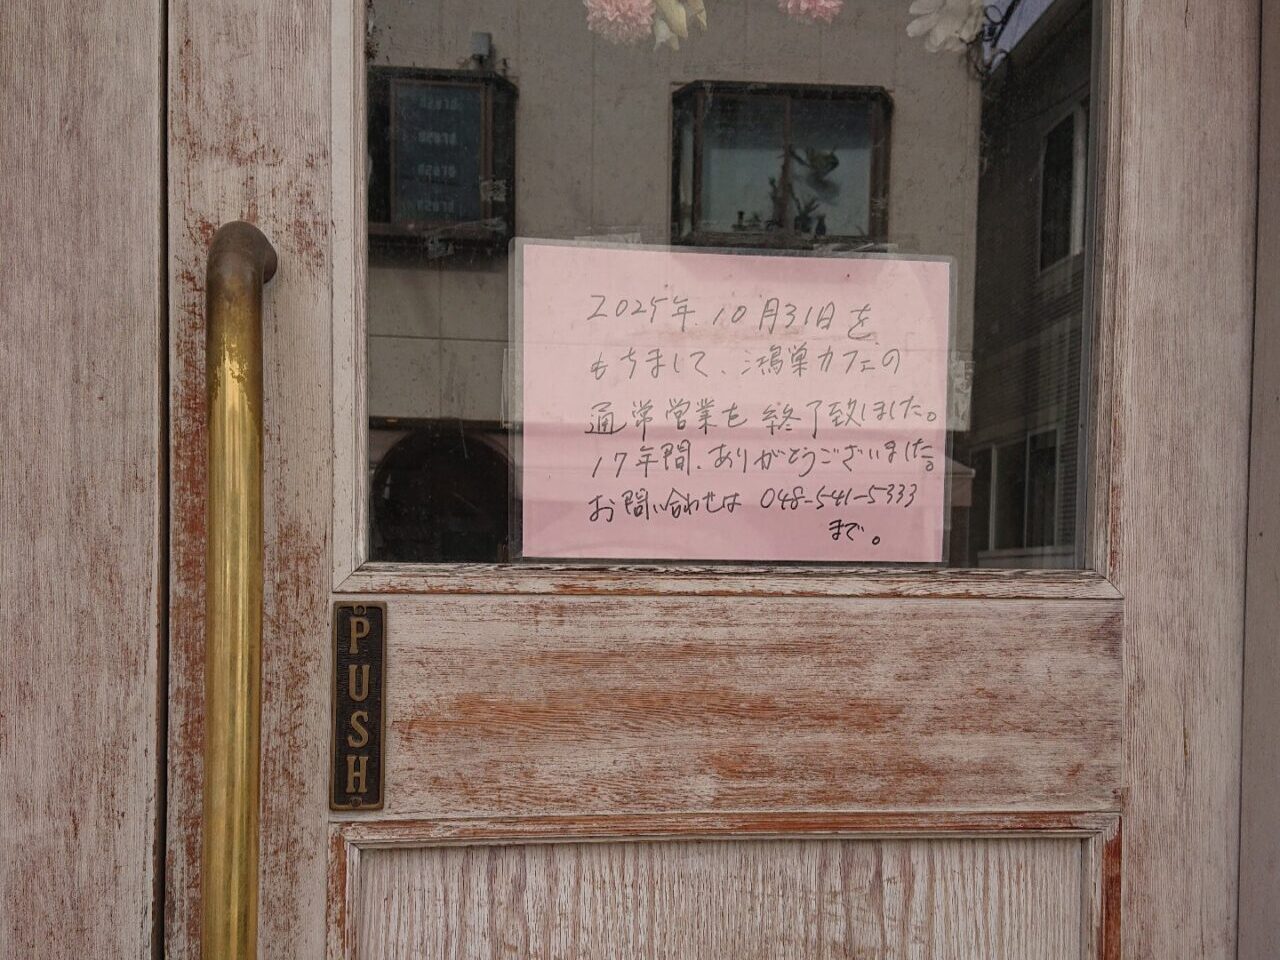 2025年10月31日を
もちまして、鴻巣カフェの
通常営業を終了致しました。
17年間、ありがとうございました。
お問い合わせは 048-541-5333
まで。
PUSH